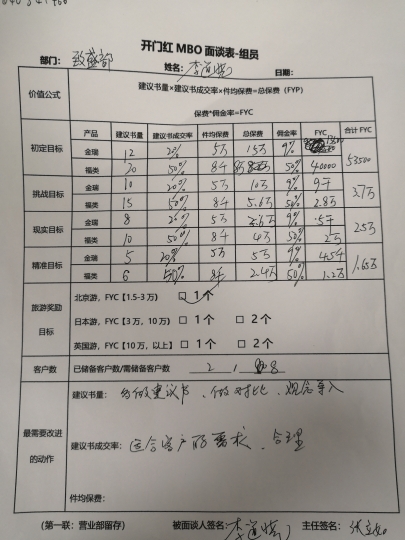 开门红 MBO 面谈表-组员
部门：致盛部 姓名：李道 日期：
价值公式 建议书量×建议书成交率×件均保费=总保费（FYP）
保费*佣金率=FYC
产品 建议书量 建议书成交率 件均保费 总保费 佣金率 FYC 合计 FYC
初定目标 金瑞 12 20% 5万 15万 9% 53500
福类 20 50% 8千 50% 40000
挑战目标 金瑞 10 20% 5万 10万 9% 9千 3.7万
福类 15 50% 8千 5.6万 50% 2.8万
现实目标 金瑞 8 20% 5万 9% 5千 2.5万
福类 10 50% 8千 4万 50% 2万
精准目标 金瑞 5 20% 5万 5万 9% 4.5千 1.65万
福类 6 50% 8千 2.4万 50% 1.2万
旅游奖励目标
北京游，FYC【1.5-3 万） □ 1个
日本游，FYC【3 万，10 万） □ 1个 □ 2个
英国游，FYC【10 万，以上】 □ 1个 □ 2个
客户数 已储备客户数/需储备客户数 2 / 8
最需要改进的动作
建议书量：多做建议书、做对比、观念导入
建议书成交率：适合客户的需求、合理
件均保费：
（第一联：营业部留存） 被面谈人签名：李道 主任签名：张